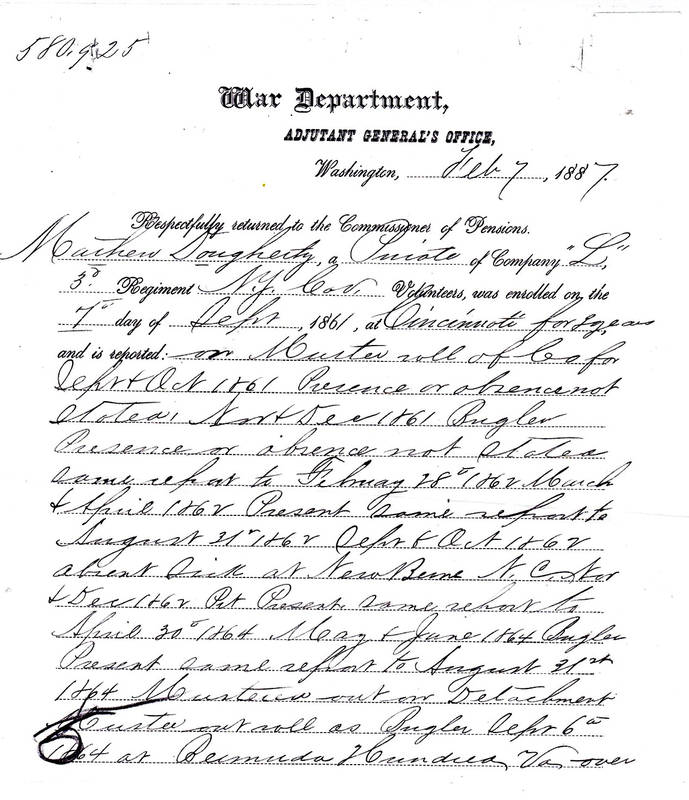 580.925
War Department,
ADJUTANT GENERAL'S OFFICE,
Washington, Feb 7, 1887.
Respectfully returned to the Commissioner of Pensions.
Mathew Dougherty, a Private of Company "L",
3d Regiment N.Y. Cav. Volunteers, was enrolled on the
7th day of Sept, 1861, at Cincinnati for 3 years
and is reported: on Muster roll of Co for
Sept & Oct 1861 Presence or absence not
stated, Nov & Dec 1861 Bugler
Presence or absence not stated
same report to February 28th 1862 March
& April 1862 Present same report to
August 31st 1862 Sept & Oct 1862
absent sick at New Berne N.C. Nov
& Dec 1862 Pvt Present. same report to
April 30th 1864 May & June 1864 Bugler
Present same report to August 31st
1864 Mustered out on Detachment
Muster out roll as Bugler Sept 6th
1864 at Bermuda Hundred, Va over